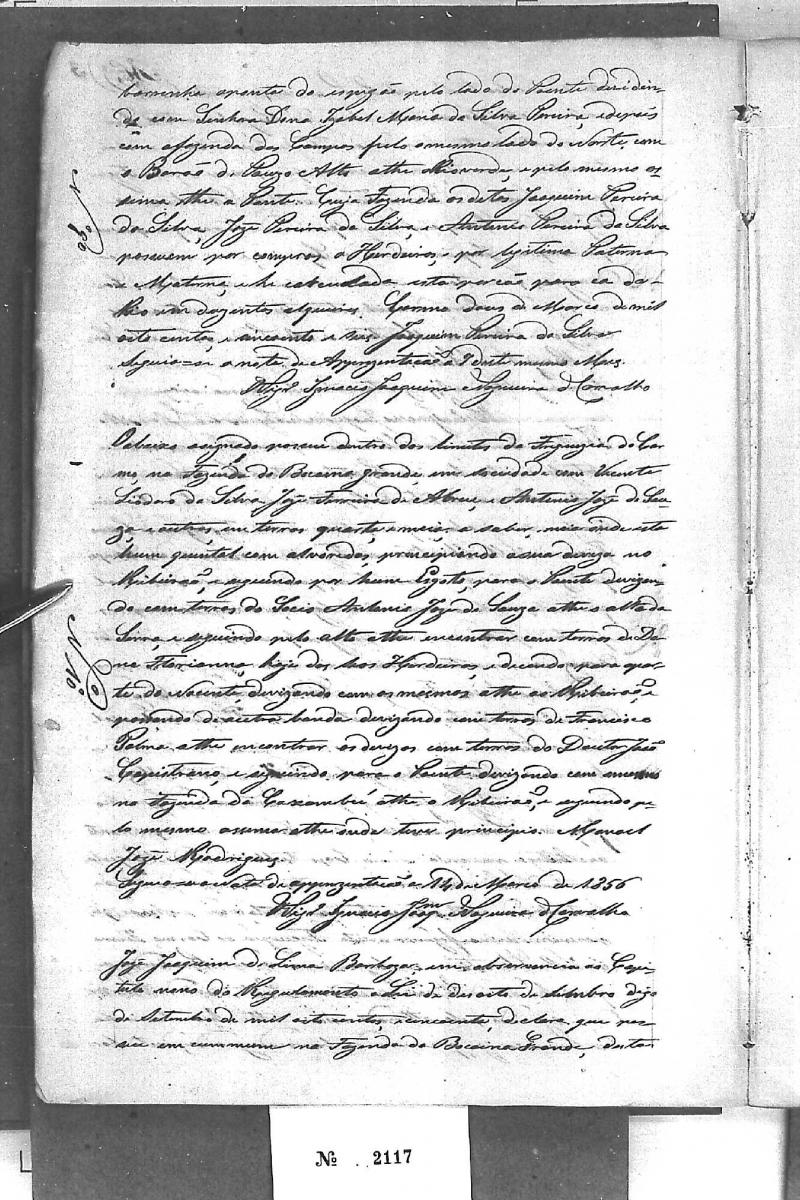 barranha aponta do espigão pelo lado do Poente dividin-
do com Senhora Dona Izabel Maria da Silva Pereira, e depois
com afazenda dos Campos pelo omesmo lado do Norte, com
o Barão de Pouzo Alto athe Rioverde, e pelo mesmo as
sima the a Ponte. Cuja Fazenda os ditos Joaquim Pereira
da Silva, José Pereira da Silva, e Antonio Pereira da Silva
possuem por compras a Herdeiros, e por legitima Paterna
e Materna, e he calculada esta porção para cá do
Rio em duzentos alqueires. Carmo dous de Março de mil
oito centos, e sincoenta e seis. Joaquim Pereira da Silva
Seguia-se a nota de Apprezentação a 9 deste mesmo Mes.
O Vigrº Ignacio Joaquim Nogueira d Carvalho
Nº 9
O abaixo assignado possue dentro dos limites da Freguezia do Car-
mo, na Fazenda da Bocaina grande, em sociedade com Vicente
Liodoro da Silva, José Ferreira de Abreu, e Antonio José de Sou-
za e outros, em terras quarta e meia, a saber, nove onde esta
hum quintal com alvoredos, principiando a sua deviza no
Ribeirão, e seguindo por hum Esgoto, para o Poente devizan-
do com terras do Socio Antonio José de Souza athe o alto da
Serra, e seguindo pelo alto athe encontrar com terras de Do-
na Florianna, hoje dos seos Herdeiros, e decendo para apar-
te do Nacente, devizando com os mesmos athe ao Ribeirão, e
passando de a outra banda devizando com terras de Francisco
Palma athe encontrar as devizas com terras do Doutor João
Capistrano, e seguindo para o Poente devizando com o mesmo
na Fazenda da Caxambú athe o Ribeirão, e seguindo pe-
lo mesmo assima athe onde teve principio. Manoel
José Rodrigues.
Seguia-se a nota de apprezentação a 14 de Março de 1856
O Vigrº Ignacio Joaqm Nogueira d Carvalho
Nº 10
José Joaquim de Lima Barboza, em observancia ao Capi-
tulo nono do Regulamento a Lei de desoito de setembro digo
de Setembro de mil oito centos, e sincoenta, declara, que pos-
sue em commum na Fazenda da Bocaina Grande, desta
Nº 2117